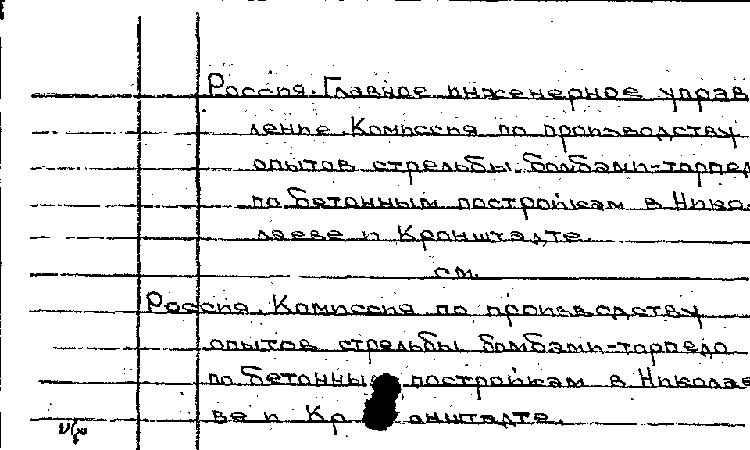 Россия. Главное инженерное управ
ление. Комиссия по производству
опытов стрельбы бомбами-торпед
по бетонным постройкам в Нико
лаеве и Кронштадте
см.
Россия. Комиссия по производству
опытов стрельбы бомбами-торпедо
по бетонны постройкам в Николае
ве и Кр онштадте.